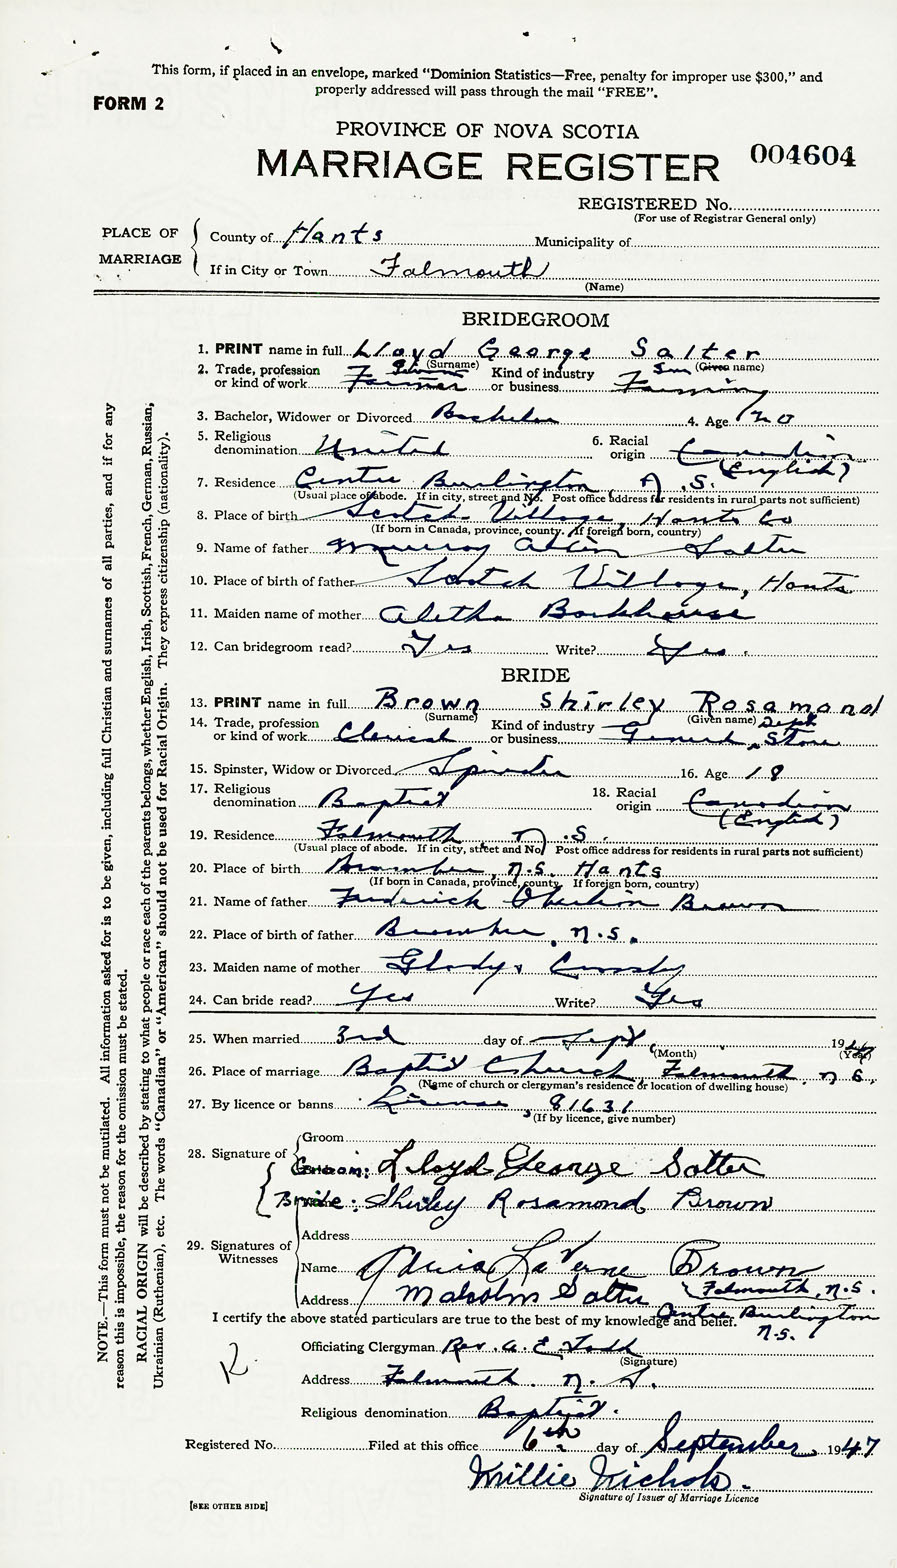 This form, if placed in an envelope, marked “Dominion Statistics—Free, penalty for improper use $300,” and
properly addressed will pass through the mail “FREE”.
FORM 2
PROVINCE OF NOVA SCOTIA
MARRIAGE REGISTER 004604
REGISTERED No.
(For use of Registrar General only)
PLACE OF MARRIAGE
County of Hants Municipality of
If in City or Town Falmouth
(Name)
BRIDEGROOM
1. PRINT name in full Lloyd George Salter
(Surname) (Given name)
2. Trade, profession or kind of work Farmer Kind of industry or business Farming
3. Bachelor, Widower or Divorced Bachelor 4. Age 20
5. Religious denomination United 6. Racial origin Canadian
(English)
7. Residence Centre Burlington N.S.
(Usual place of abode. If in city, street and No. Post office address for residents in rural parts not sufficient)
8. Place of birth Scotch Village, Hants Co
(If born in Canada, province, county. If foreign born, country)
9. Name of father Murray Salter
10. Place of birth of father Scotch Village, Hants
11. Maiden name of mother Aletha Barkhouse
12. Can bridegroom read? Yes Write? Yes.
BRIDE
13. PRINT name in full Brown Shirley Rosamond
(Surname) (Given name)
14. Trade, profession or kind of work Clerical Kind of industry or business General Dept Store
15. Spinster, Widow or Divorced Spinster 16. Age 18
17. Religious denomination Baptist 18. Racial origin Canadian
(English)
19. Residence Falmouth, N.S.
(Usual place of abode. If in city, street and No. Post office address for residents in rural parts not sufficient)
20. Place of birth Bramber, N.S. Hants
(If born in Canada, province, county. If foreign born, country)
21. Name of father Frederick Brown
22. Place of birth of father Bramber, N.S.
23. Maiden name of mother Gladys Crossley
24. Can bride read? Yes Write? Yes
25. When married 3rd day of Sept 1947
(Month) (Year)
26. Place of marriage Baptist Church, Falmouth, N.S.
(Name of church or clergyman's residence or location of dwelling house)
27. By licence or banns License, 81631
(If by licence, give number)
28. Signature of
Groom
Groom: Lloyd George Salter
Bride: Shirley Rosamond Brown
Address
29. Signatures of Witnesses
Name LaVerne Brown
Falmouth, N.S.
Address Malcolm Salter
Centre Burlington N.S.
I certify the above stated particulars are true to the best of my knowledge and belief.
Officiating Clergyman Rev. A. E. Todd
(Signature)
Address Falmouth. N. S.
Religious denomination Baptist.
Registered No. Filed at this office 6th day of September, 1947
Millie Nichols.
Signature of Issuer of Marriage Licence
[SEE OTHER SIDE]
NOTE.—This form must not be mutilated. All information asked for is to be given, including full Christian and surnames of all parties, and if for any
reason this is impossible, the reason for the omission must be stated.
RACIAL ORIGIN will be described by stating to what people or race each of the parents belongs, whether English, Irish, Scottish, French, German, Russian,
Ukrainian (Ruthenian), etc. The words “Canadian” or “American” should not be used for Racial Origin. They express citizenship (nationality).